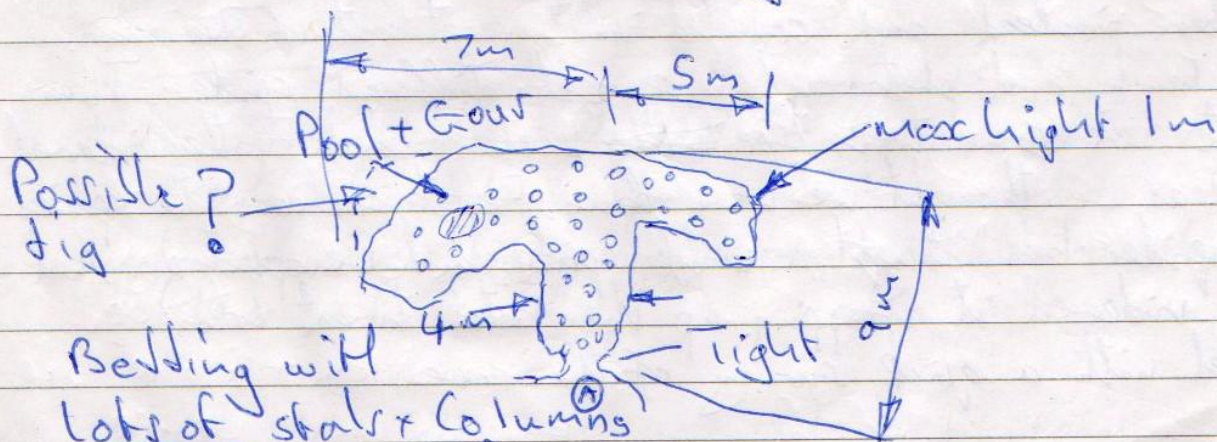 7m
5m
Pool + Gour
max hight 1m
Possible ?
dig
4m
9m
Tight
Bedding with
A
lots of stals + Columns